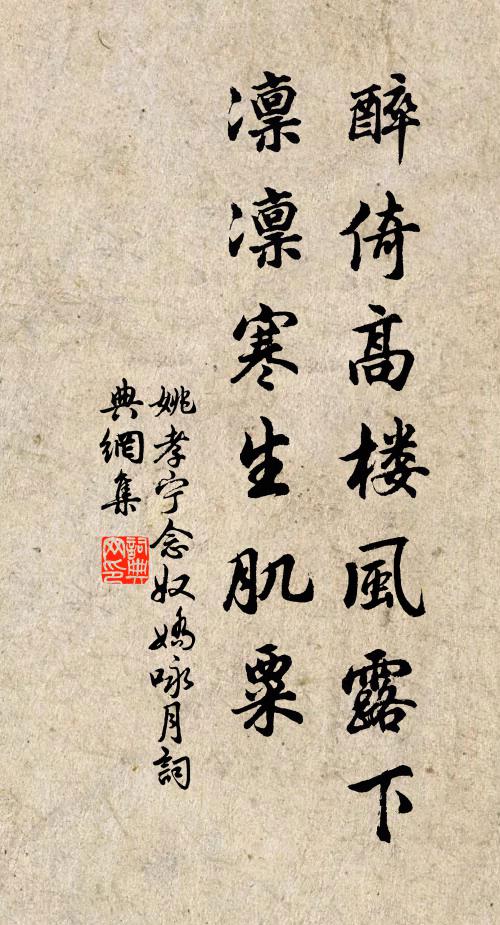 醉倚高楼風露下
凛凛寒生肌粟
姚孝宁念奴嬌咏月詞
典網集
詞典网印